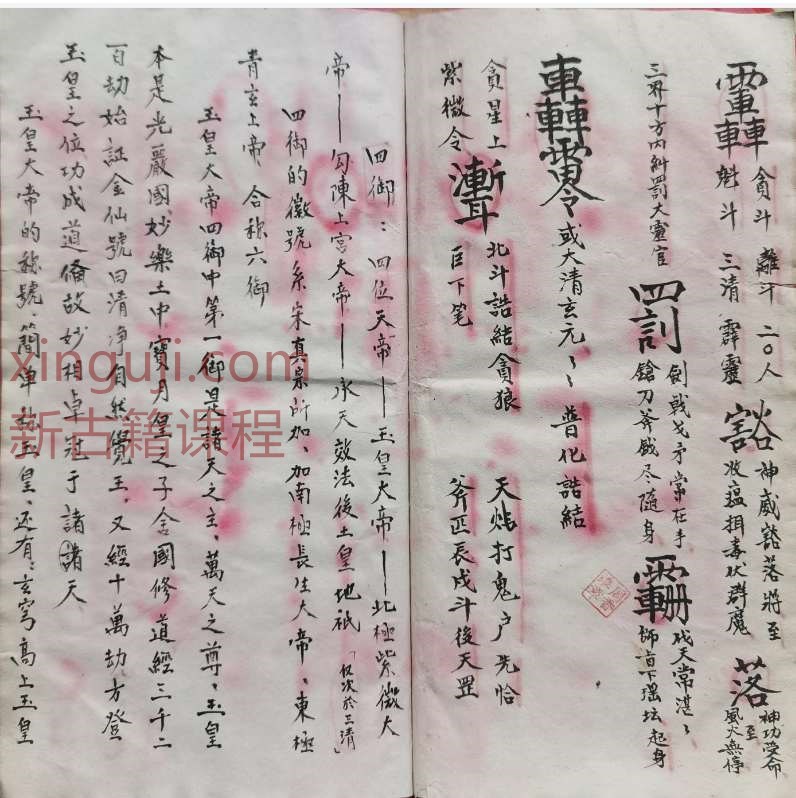 貪斗 離斗 二〇人
魁斗 三清 霹靂
豁 神威豁落將至
收瘟捐毒伏群魔
落 神功受命
至
風火無停
三界十方內糾四罰大靈官
四罰 劍戟戈矛常在手
鎗刀斧鉞尽隨身
代天常湛〻
御旨下瑶坛起身
或大清玄元〻〻 普化誥結
貪星上
紫微令
北斗誥結貪狼
巨下笔
打鬼户先恰
辰戌斗後天罡
四御：四位天帝——玉皇大帝——北極紫微大
帝——勾陳上宫大帝——承天效法後土皇地祇「仅次於三清」
四御的徽號系宋真宗所加、加南極長生大帝、東極
青玄上帝 合称六御
玉皇大帝四御中第一御是諸天之主、萬天之尊、玉皇
本是光嚴國、妙樂土中寶月皇之子舍國修道經三千二
百劫始証金仙號曰清净自然覺王、又經十萬劫方登
玉皇之位功成道備故妙相卓冠于諸諸天
玉皇大帝的称號、簡单称玉皇、还有：玄穹高上玉皇
xinguji.com
新古籍课程